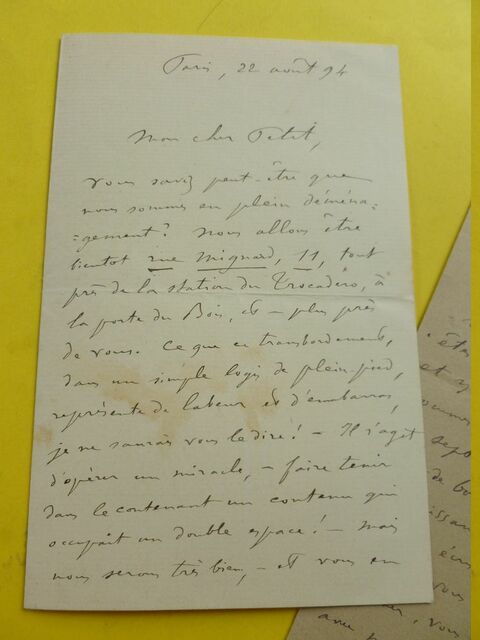 Paris, 22 août 94
Mon cher Petit,
vous savez peut-être que
nous sommes en plein déména-
-gement? Nous allons être
bientôt rue Mignard, 11, tout
près de la station du Trocadéro, à
la porte du Bois, et – plus près
de vous. Ce que ce transbordement,
dans un simple logis de plein-pied,
représente de labeur et d'embarras,
je ne saurais vous le dire! – Il s'agit
d'opérer un miracle, – faire tenir
dans le contenant un contenu qui
occupait un double espace! – Mais
nous serons très bien, – et vous en
et
de